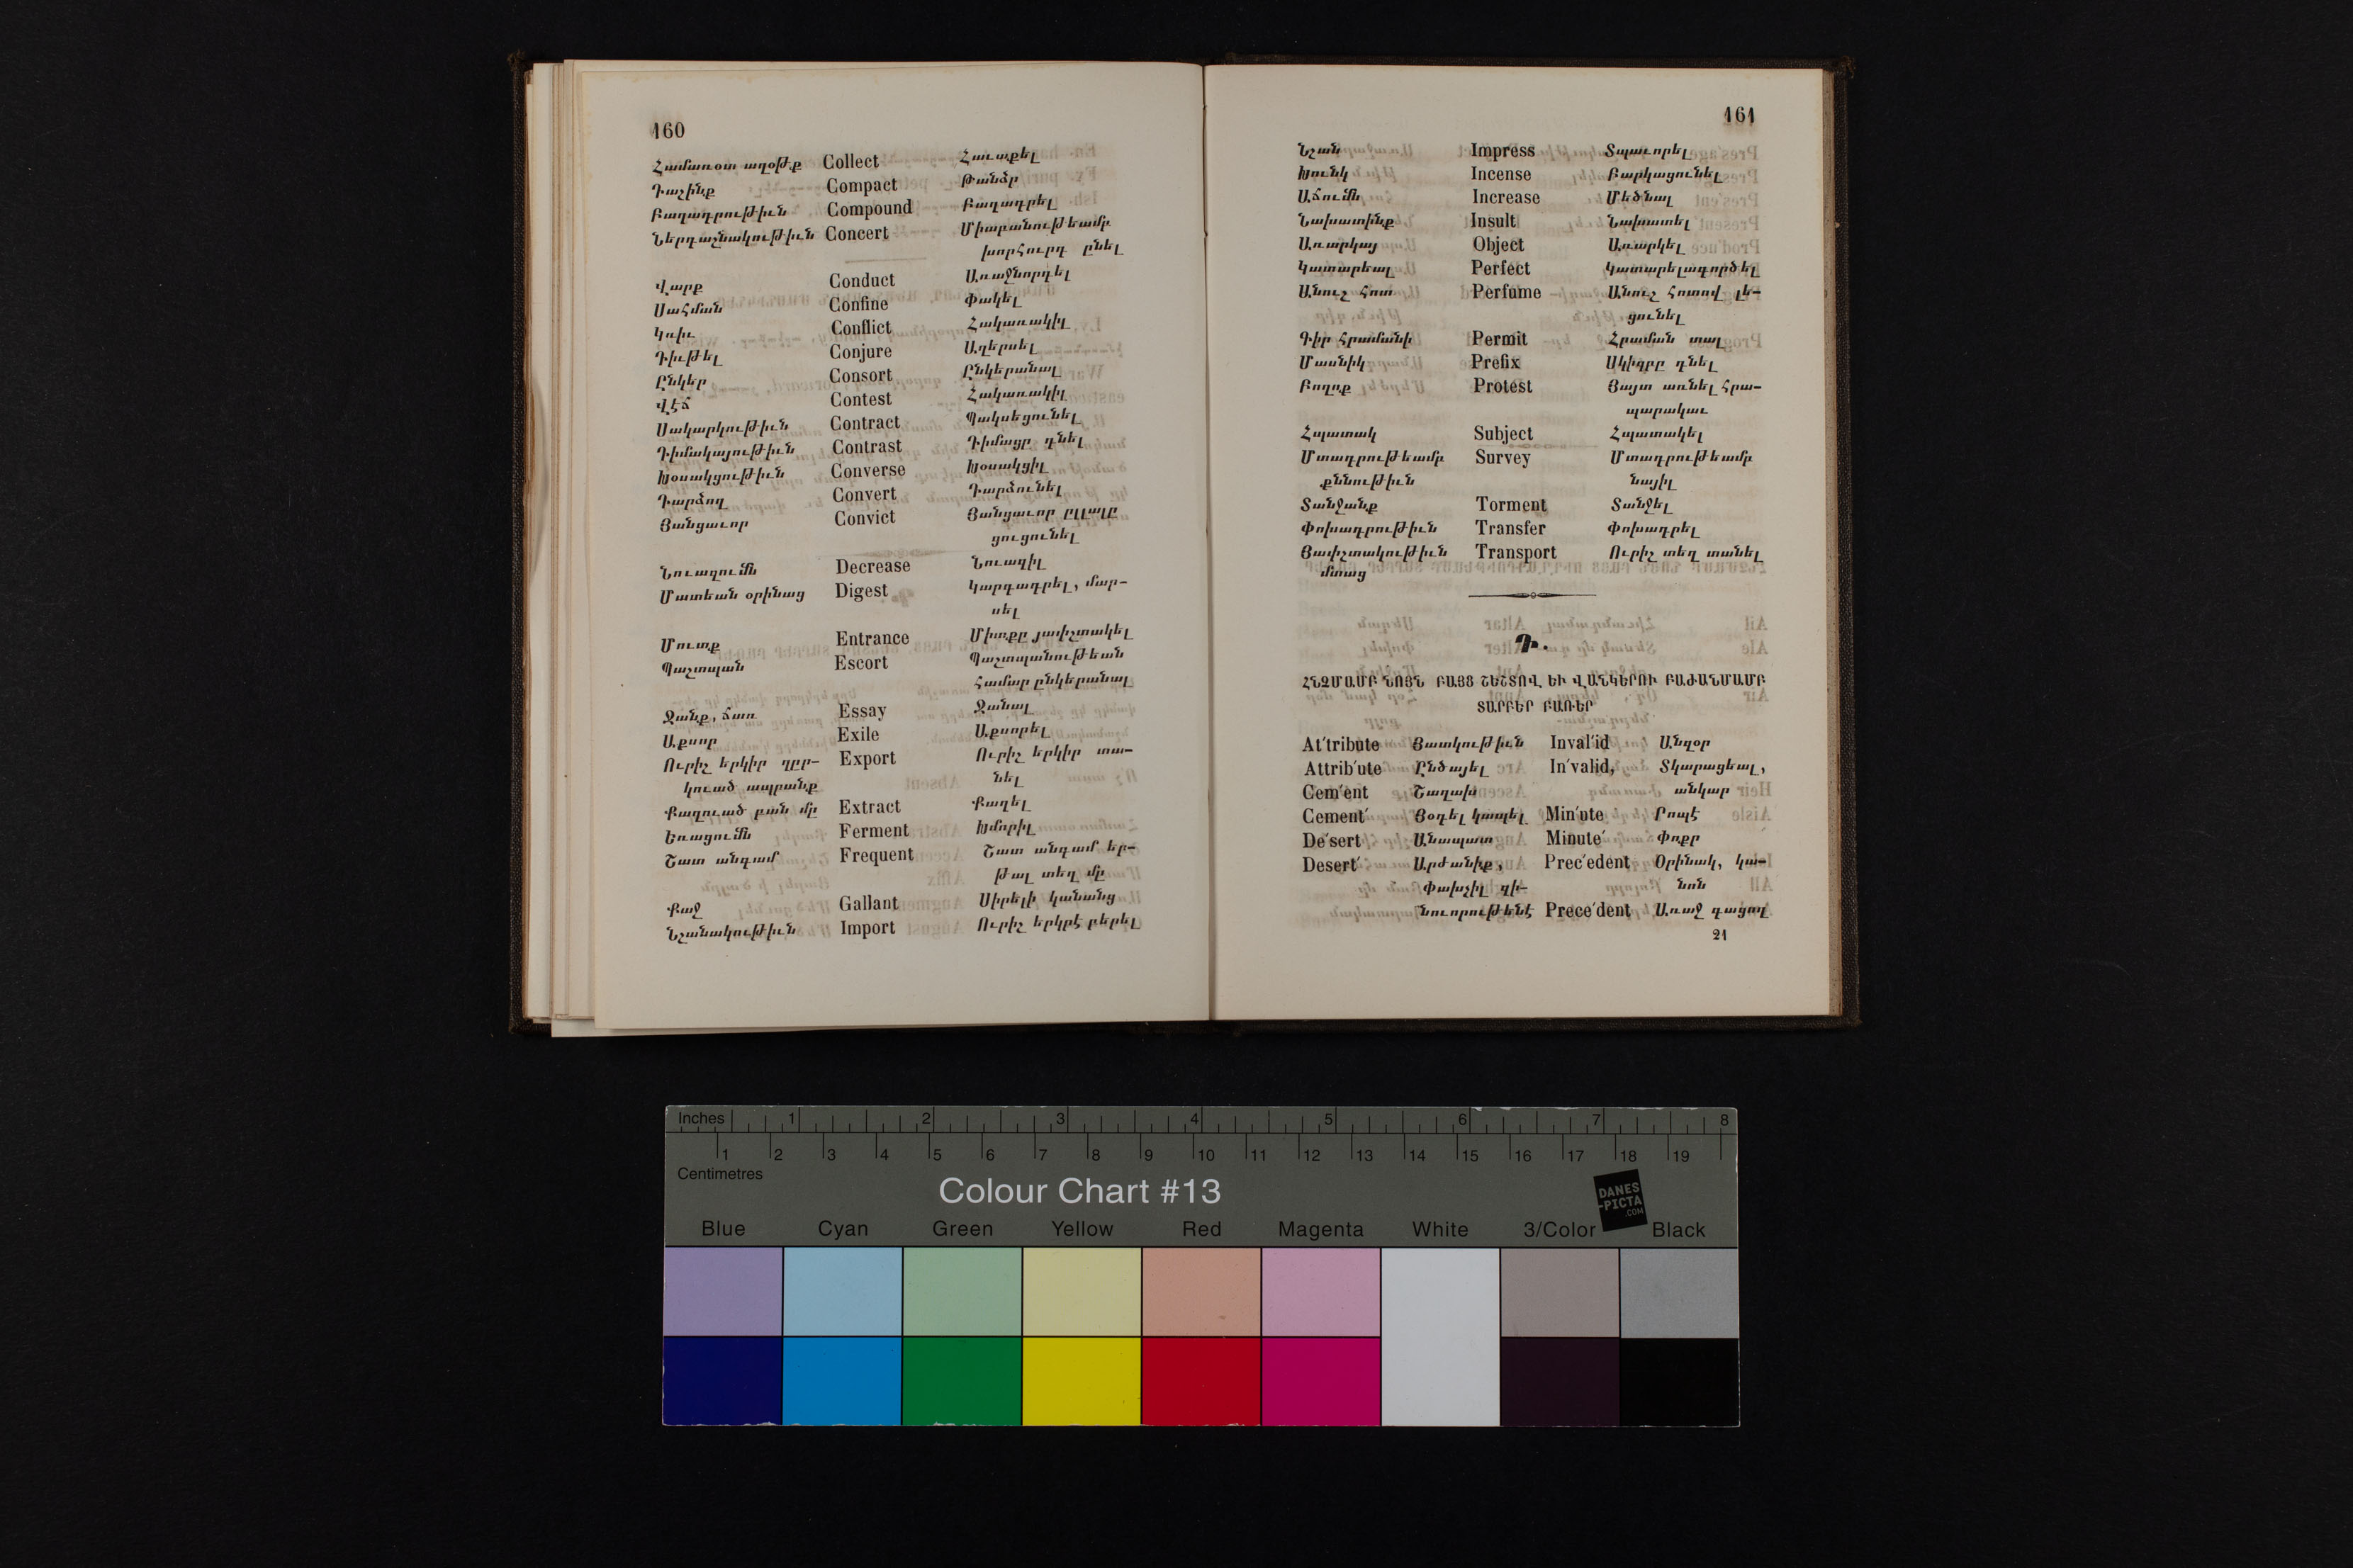 160
Համառօտ աղօթք Collect Հաւաքել
Դաշինք Compact Թանձր
Բաղադրութիւն Compound Բաղադրել
Ներդաշնակութիւն Concert Միաբանութեամբ
խորհուրդ ընել
Վարք Conduct Առաջնորդել
Սահման Confine Փակել
Կռիւ Conflict Հակառակիլ
Դիւթել Conjure Աղերսել
Ընկեր Consort Ընկերանալ
Վէճ Contest Հակառակիլ
Սակարկութիւն Contract Պակսեցունել
Դիմակայութիւն Contrast Դիմացը դնել
Խօսակցութիւն Converse Խօսակցիլ
Դարձող Convert Դարձունել
Յանցաւոր Convict Յանցաւոր ըլլալը
ցուցունել
Նուազումն Decrease Նուազիլ
Մատեան օրինաց Digest Կարգադրել, մար-
սել
Մուտք Entrance Միտքը յափշտակել
Պաշտպան Escort Պաշտպանութեան
համար ընկերանալ
Ջանք, ճառ Essay Ջանալ
Աքսոր Exile Աքսորել
Ուրիշ երկիր ղըր- Export Ուրիշ երկիր տա-
կուած ապրանք նել
Քաղուած բան մը Extract Քաղել
Եռացումն Ferment Խմորիլ
Շատ անգամ Frequent Շատ անգամ եր-
թալ տեղ մը
Քաջ Gallant Սիրելի կանանց
Նշանակութիւն Import Ուրիշ երկրէ բերել
161
Նշան Impress Տպաւորել
Խունկ Incense Բարկացունել
Աճումն Increase Մեծնալ
Նախատինք Insult Նախատել
Առարկայ Object Առարկել
Կատարեալ Perfect Կատարելագործել
Անուշ հոտ Perfume Անուշ հոտով լե-
ցունել
Գիր հրամանի Permit Հրաման տալ
Մասնիկ Prefix Սկիզբը դնել
Բողոք Protest Յայտ առնել հրա-
պարակաւ
Հպատակ Subject Հպատակել
Մտադրութեամբ Survey Մտադրութեամբ
քննութիւն նայիլ
Տանջանք Torment Տանջել
Փոխադրութիւն Transfer Փոխադրել
Յափշտակութիւն Transport Ուրիշ տեղ տանել
մտաց
Դ.
ՀՆՉՄԱՄԲ ՆՈՅՆ ԲԱՅՑ ՇԵՇՏՈՎ ԵՒ ՎԱՆԿԵՐՈՒ ԲԱԺԱՆՄԱՄԲ
ՏԱՐԲԵՐ ԲԱՌԵՐ
At′tribute Յատկութիւն Inval′id Անզօր
Attrib′ute Ընծայել In′valid, Տկարացեալ,
Cem′ent Շաղախ անկար
Cement′ Յօդել կապել Min′ute Րոպէ
De′sert Անապատ Minute′ Փոքր
Desert′ Արժանիք, Prec′edent Օրինակ, կա-
Փախչիլ զի- նոն
նուորութենէ Prece′dent Առաջ գացող
21
Inches 1 2 3 4 5 6 7 8
1 2 3 4 5 6 7 8 9 10 11 12 13 14 15 16 17 18 19
Centimetres
Colour Chart #13
DANES
-PICTA
.COM
Blue Cyan Green Yellow Red Magenta White 3/Color Black